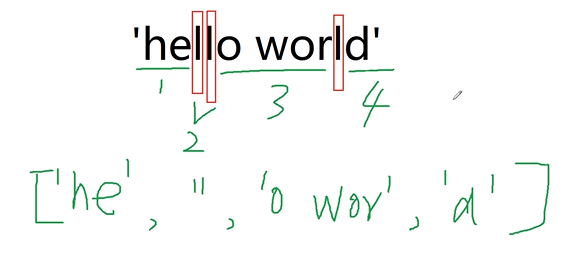 'hello world'
1 3 4
2
['he', '', 'o wor', 'd']